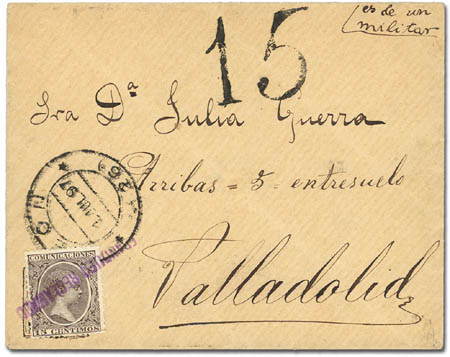 es de un
militar
15
Sra Dª Julia Guerra
Arribas = 5 = entresuelo
Valladolid
JUL 97
COMUNICACIONES
15 CENTIMOS